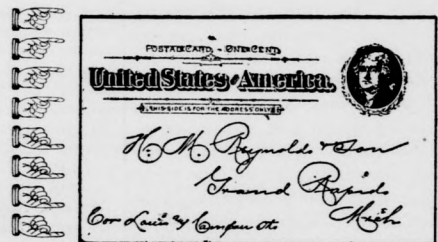 POSTAL CARD. - ONE CENT.
United States of America.
THIS SIDE IS FOR THE ADDRESS ONLY
H. M. Reynolds & Son
Grand Rapids
Cor Louis & Campau Sts Mich